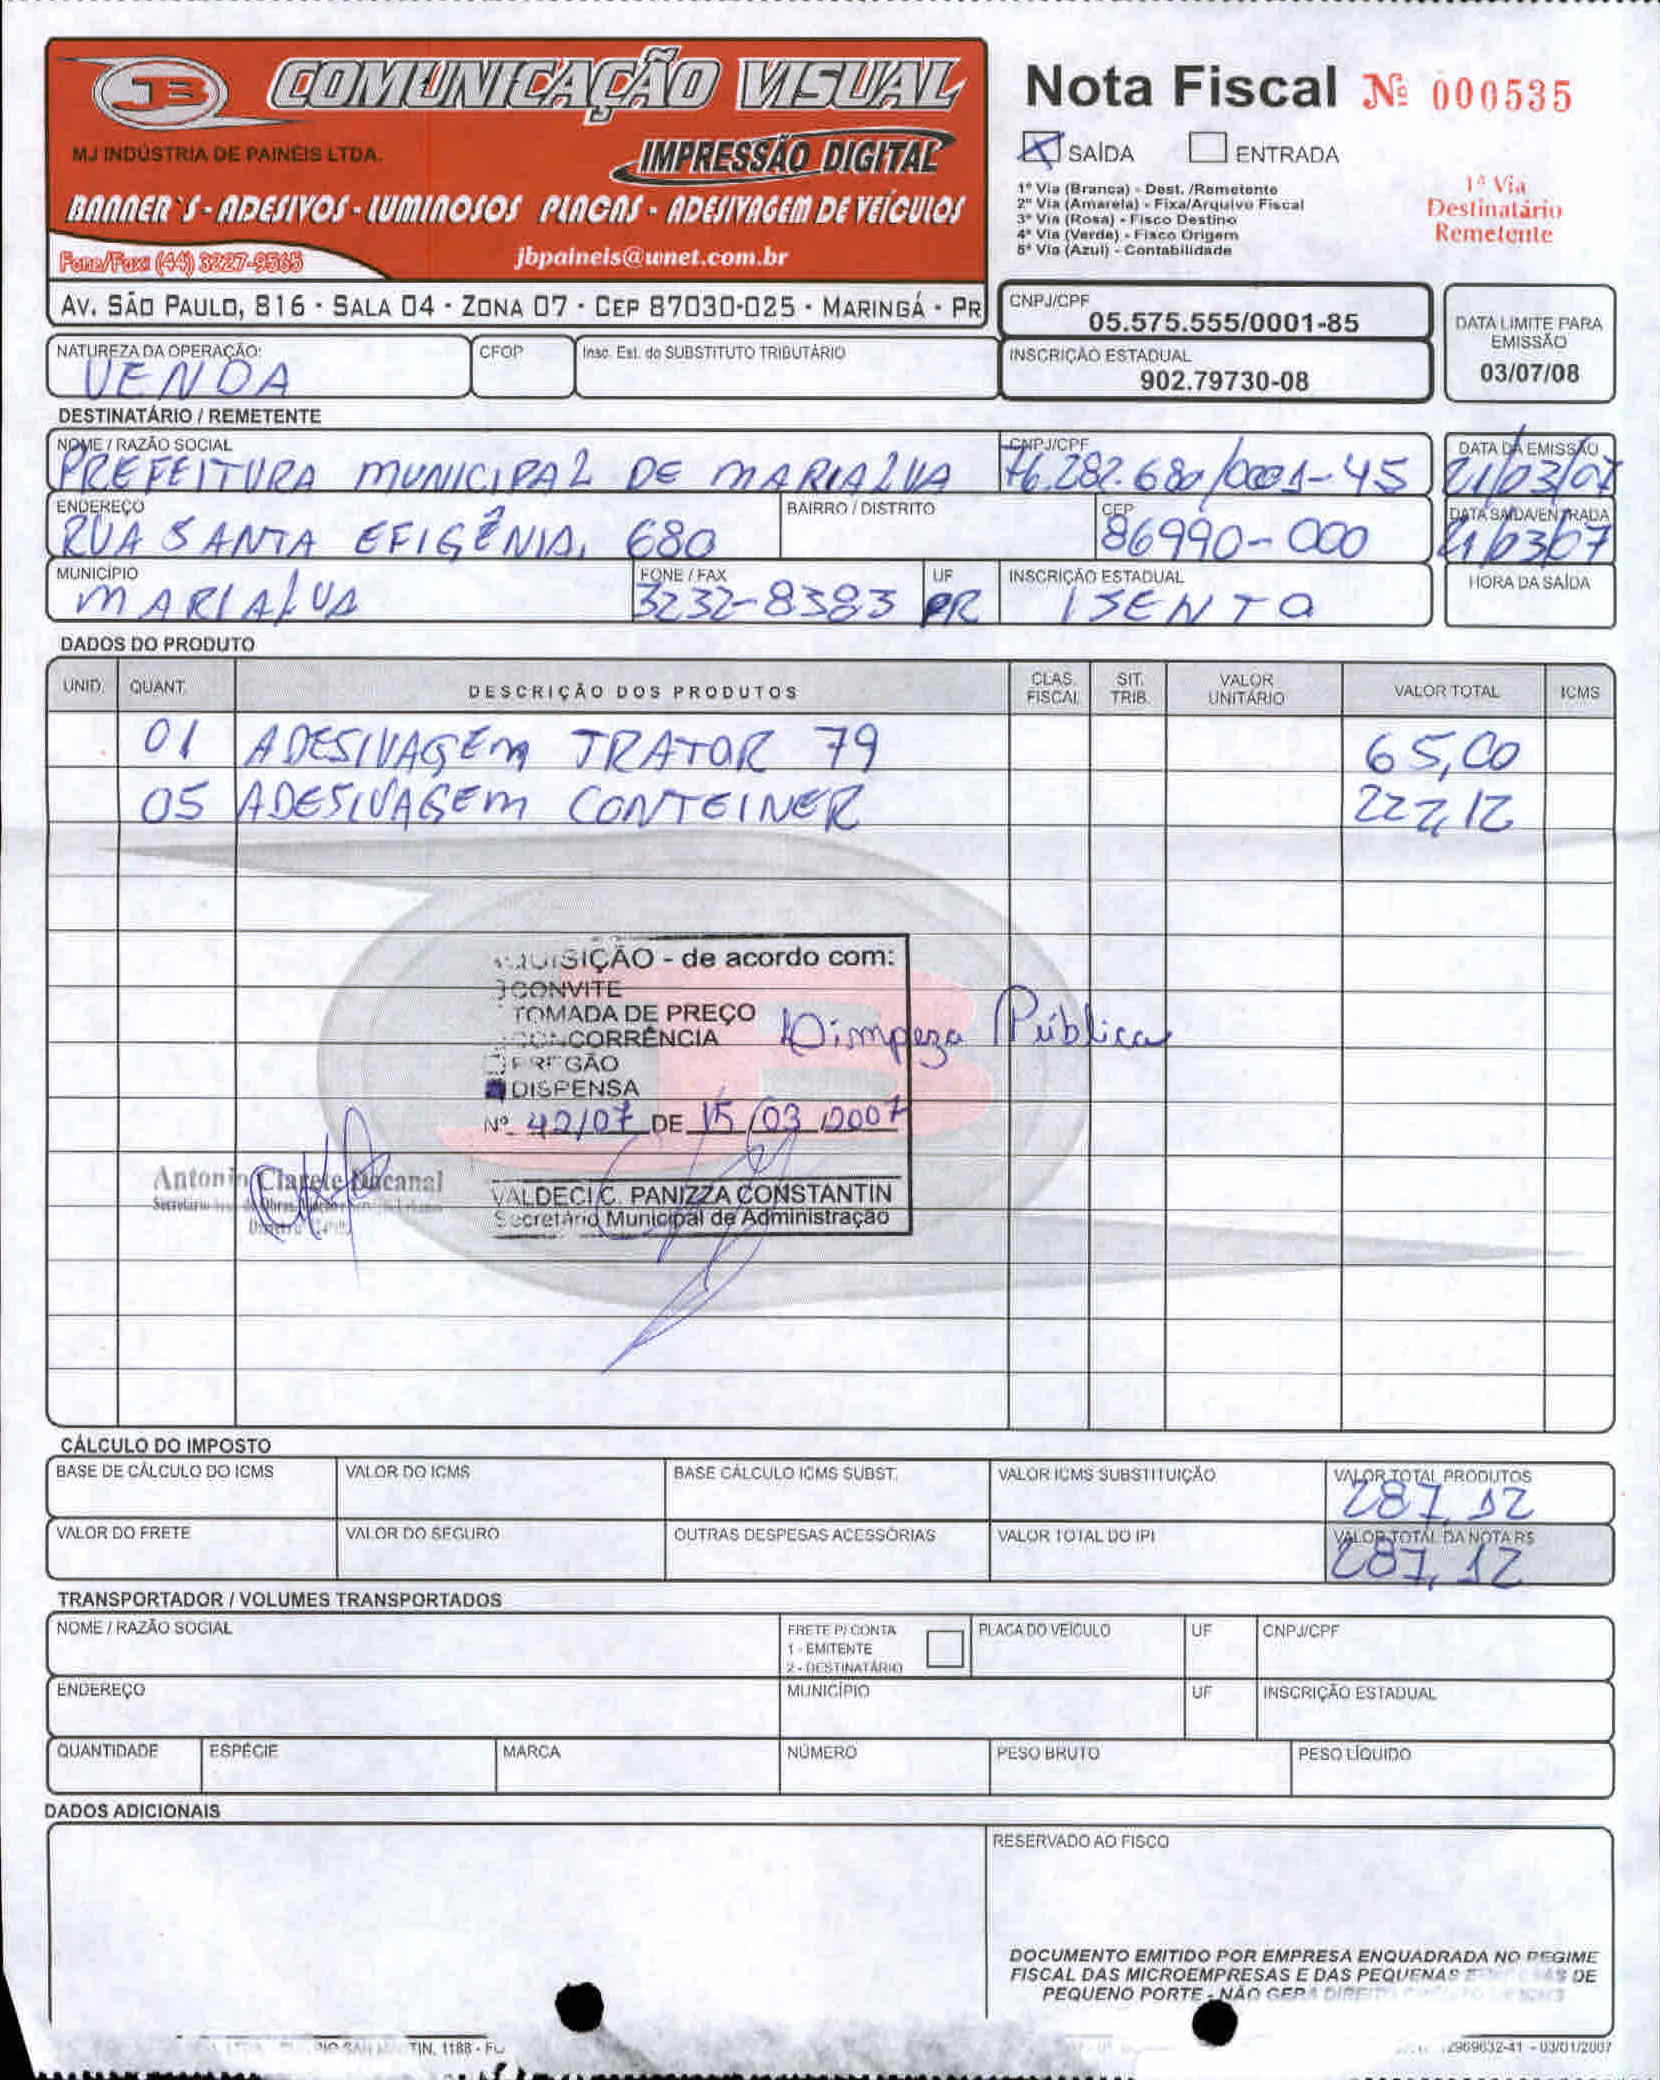 JB COMUNICAÇÃO VISUAL
MJ INDÚSTRIA DE PAINÉIS LTDA.
IMPRESSÃO DIGITAL
BANNER'S - ADESIVOS - LUMINOSOS PLACAS - ADESIVAGEM DE VEÍCULOS
Fone/Fax: (44) 3227-9565
jbpaineis@wnet.com.br
AV. SÃO PAULO, 816 - SALA 04 - ZONA 07 - CEP 87030-025 - MARINGÁ - PR
Nota Fiscal Nº 000535
SAÍDA ENTRADA
1ª Via (Branca) - Dest. /Remetente
2ª Via (Amarela) - Fixa/Arquivo Fiscal
3ª Via (Rosa) - Fisco Destino
4ª Via (Verde) - Fisco Origem
5ª Via (Azul) - Contabilidade
1ª Via
Destinatário
Remetente
CNPJ/CPF
05.575.555/0001-85
INSCRIÇÃO ESTADUAL
902.79730-08
DATA LIMITE PARA
EMISSÃO
03/07/08
NATUREZA DA OPERAÇÃO: CFOP Insc. Est. do SUBSTITUTO TRIBUTÁRIO
VENDA
DESTINATÁRIO / REMETENTE
NOME / RAZÃO SOCIAL CNPJ/CPF DATA DA EMISSÃO
PREFEITURA MUNICIPAL DE MARIALVA 76.282.680/0001-45 21/03/07
ENDEREÇO BAIRRO / DISTRITO CEP DATA SAÍDA/ENTRADA
RUA SANTA EFIGÊNIA, 680 86990-000 21/03/07
MUNICÍPIO FONE / FAX UF INSCRIÇÃO ESTADUAL HORA DA SAÍDA
MARIALVA 3232-8383 PR ISENTO
DADOS DO PRODUTO
UNID. QUANT. DESCRIÇÃO DOS PRODUTOS CLAS. FISCAL SIT. TRIB. VALOR UNITÁRIO VALOR TOTAL ICMS
01 ADESIVAGEM TRATOR 79 65,00
05 ADESIVAGEM CONTEINER 222,12
- de acordo com:
CONVITE
TOMADA DE PREÇO
CONCORRÊNCIA
PREGÃO
DISPENSA
Nº 42/07 DE 15/03/2007
Limpeza Pública
VALDECI C. PANIZZA CONSTANTIN
Secretário Municipal de Administração
Antonio Clarete
CÁLCULO DO IMPOSTO
BASE DE CÁLCULO DO ICMS VALOR DO ICMS BASE CÁLCULO ICMS SUBST. VALOR ICMS SUBSTITUIÇÃO VALOR TOTAL PRODUTOS
287,12
VALOR DO FRETE VALOR DO SEGURO OUTRAS DESPESAS ACESSÓRIAS VALOR TOTAL DO IPI VALOR TOTAL DA NOTA R$
287,12
TRANSPORTADOR / VOLUMES TRANSPORTADOS
NOME / RAZÃO SOCIAL FRETE P/ CONTA PLACA DO VEÍCULO UF CNPJ/CPF
1 - EMITENTE
2 - DESTINATÁRIO
ENDEREÇO MUNICÍPIO UF INSCRIÇÃO ESTADUAL
QUANTIDADE ESPÉCIE MARCA NÚMERO PESO BRUTO PESO LÍQUIDO
DADOS ADICIONAIS
RESERVADO AO FISCO
DOCUMENTO EMITIDO POR EMPRESA ENQUADRADA NO REGIME
FISCAL DAS MICROEMPRESAS E DAS PEQUENAS DE
PEQUENO PORTE - NÃO GERA
TIN, 1188 -
2969632-41 - 03/01/2007